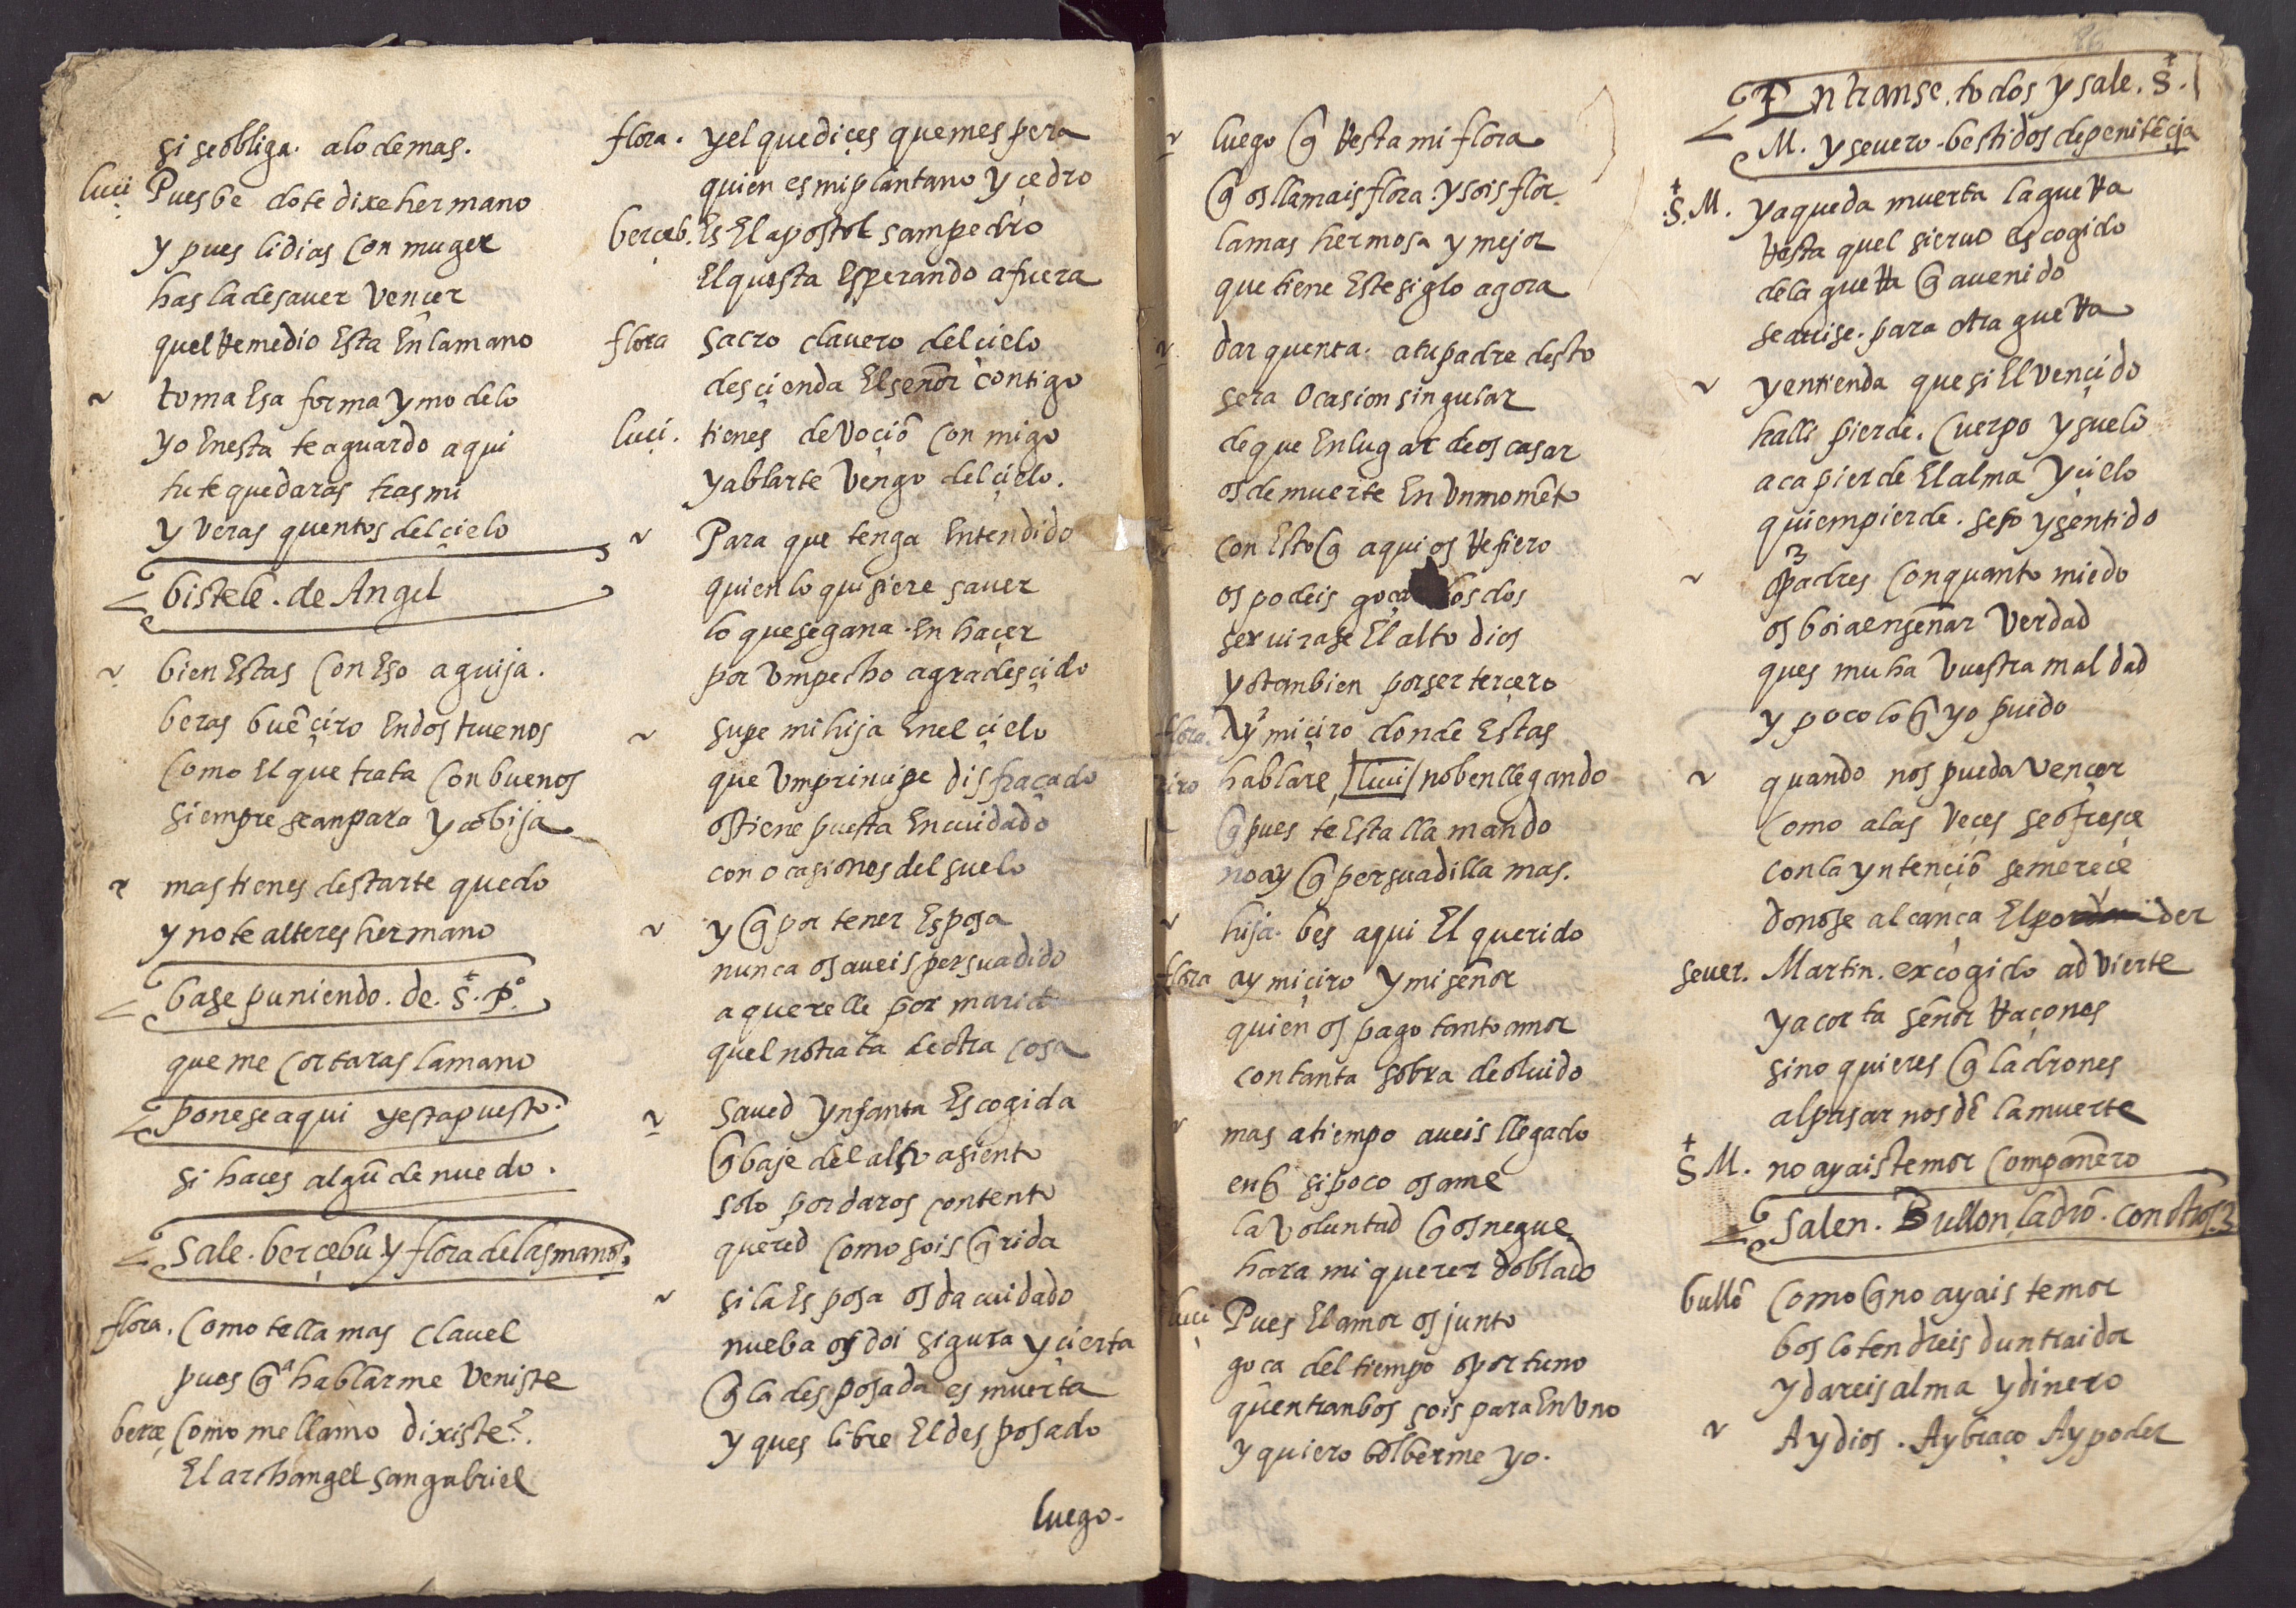 si se obliga. a lo demas.
luci Pues be do te dixe hermano
y pues lidias con muger
has la de saver vençer
quel Remedio Esta En la mano
~ toma Esa forma y modelo
yo En esta te aguardo aqui
tu te quedaras tras mi
y veras quentos del çielo
bistele. de Angel
~ bien Estas con Eso aguija.
beras buē çiro En dos truenos
como El que trata con buenos
siempre se anpara y cobija
~ mas tienes destarte quedo
y no te alteres hermano
base puniendo. de. S. P.º
que me cortaras la mano
ponese aqui y esta puesto.
si haces algū denuedo.
Sale. berçebu y flora de las manos.
flora. Como te llamas clavel
pues q̄ a hablarme veniste
berçe Como me llamo dixiste?.
El archangel san gabriel
flora. y el que diçes que mespera
quien es mi plantano y çedro
berçeb. Es El apostol sam pedro
El questa Esperando a fuera
flora sacro clavero del çielo
desçienda El señor contigo
luçi. tienes devoçiō con migo
y ablarte vengo del çielo.
~ Para que tenga Entendido
quien lo quisiere saver
lo que se gana. En haçer
por vm pecho agradesçido
~ supe mi hija En el çielo
que vm principe disfraçado
os tiene puesta En cuidado
con ocasiones del suelo
~ y q̄ por tener Esposa
nunca os aveis persuadido
a querelle por marido
quel no trata de otra cosa
~ Saved ynfanta Escogida
q̄ baje del alto asiento
solo por daros contento
quered como sois q̄rida
~ si la Esposa os da cuidado
nueba os doi sigura y çierta
q̄ la desposada es muerta
y ques libre El desposado
luego.
~ luego q̄ Resta mi flora
q̄ os llamais flora. y sois flor.
la mas hermosa y mejor
que tiene Este siglo agora
~ dar quenta. a tu padre desto
sera Ocasion singular
de que En lugar de os casar
os de muerte En vn momēto
~ con Esto q̄ aqui os Refiero
os podeis goça los dos
servirase El alto dios
y os tanbien por ser terçero
flora. Ay mi çiro donde Estas
çiro hablare, luci no ben llegando
q̄ pues te Esta llamando
no ay q̄ persuadilla mas.
~ hija. bes aqui El querido
flora ay mi çiro y mi señor
quien os pago tanto amor
con tanta sobra de olvido
~ mas a tiempo aveis llegado
en q̄ si poco os ame
la voluntad q̄ os negue
hara mi querer doblado
luçi Pues El amor os junto
goça del tiempo oportuno
quentranbos sois para En vno
y quiero bolberme yo.
Entranse. todos y sale. S.
M. y severo. bestidos de penitēçia
S. M. ya queda muerta la gueRa
Resta quel siervo escogido
de la gueRa q̄ a venido
se avise. para otra gueRa
~ y entienda que si El vençido
halli pierde. cuerpo y suelo
aca pierde El alma y çielo
quiem pierde. seso y sentido
~ padres con quanto miedo
os boi a enseñar verdad
ques muha vuestra maldad
y poco lo q̄ yo puedo
~ quando nos pueda vençer
como a las veçes se ofresçe
con la yntençiō se mereçe
do no se alcança El poder
sever. Martin. excogido advierte
y acorta señor Raçones
si no quieres q̄ ladrones
al pasar nos dē la muerte
S M. no ayais temor compañero
Salen. Bullon, ladrō. con otros 3
bullō Como q̄ no ayais temor
bos lo tendreis dun traidor
y dareis alma y dinero
~ Ay dios. Ay braço Ay poder